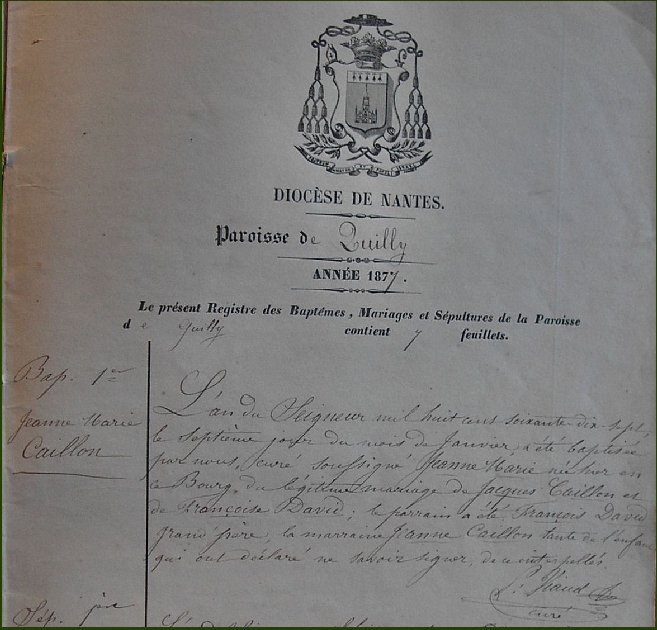 DIOCÈSE DE NANTES.
Paroisse de Quilly
ANNÉE 1877.
Le présent Registre des Baptêmes, Mariages et Sépultures de la Paroisse
de Quilly contient 7 feuillets.
Bap. 1er
Jeanne Marie
Caillon
L'an du Seigneur mil huit cent soixante dix sept
le septième jour du mois de Janvier, a été baptisée
par nous, curé soussigné Jeanne Marie née hier en
ce Bourg, du légitime mariage de Jacques Caillon et
de Françoise David; le parrain a été François David
grand père, la marraine Jeanne Caillon tante de l'enfant
qui ont déclaré ne savoir signer, de ce interpellés.
curé
Sép.